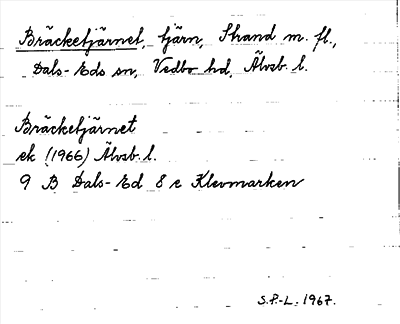 Bräcketjärnet, tjärn, Strand m. fl.,
Dals-Eds sn, Vedbo hd, Älvsb. l.
Bräcketjärnet
ek (1966) Älvsb. l.
9 B Dals-Ed 8 e Klevmarken
S.P.-L. 1967.